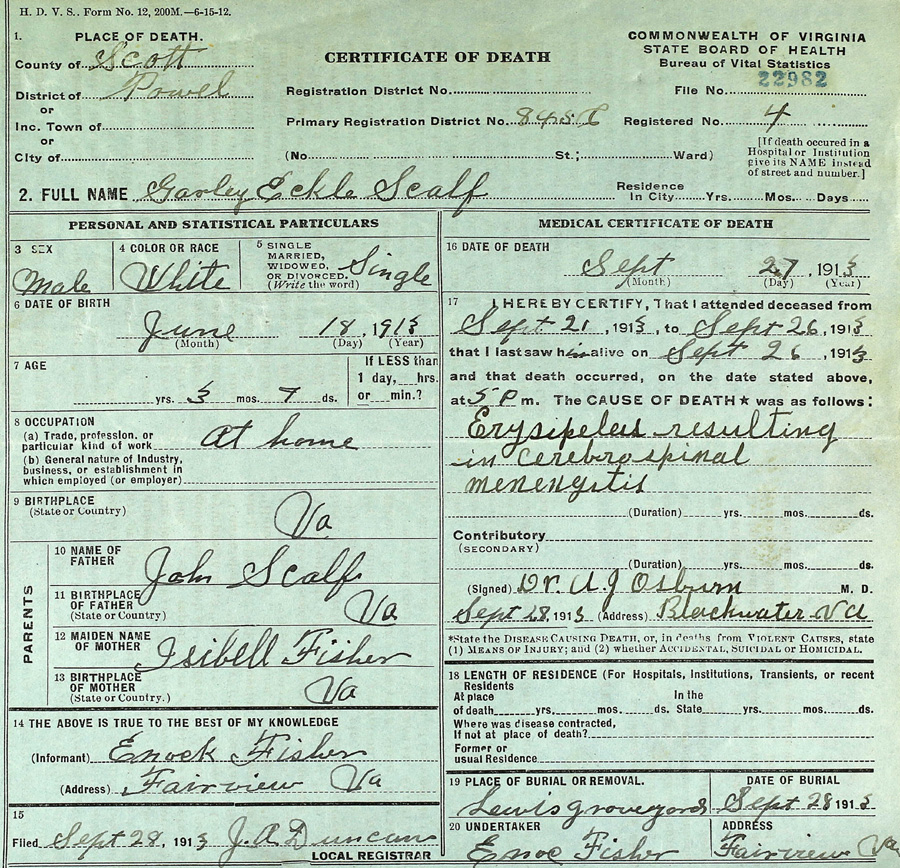 H. D. V. S.. Form No. 12, 200M.—6-15-12.
1. PLACE OF DEATH.
County of Scott
District of Powel
or
Inc. Town of
or
City of
CERTIFICATE OF DEATH
Registration District No.
Primary Registration District No.
(No. St.; Ward)
COMMONWEALTH OF VIRGINIA
STATE BOARD OF HEALTH
Bureau of Vital Statistics
22982
File No.
Registered No. 4
[If death occured in a
Hospital or Institution
give its NAME instead
of street and number.]
2. FULL NAME Garley Eckle Scalf
Residence
In City Yrs. Mos. Days
PERSONAL AND STATISTICAL PARTICULARS
3 SEX
Male
4 COLOR OR RACE
White
5 SINGLE
MARRIED,
WIDOWED,
OR DIVORCED.
(Write the word)
Single
6 DATE OF BIRTH
June 18, 1913
(Month) (Day) (Year)
7 AGE
yrs. 3 mos. 7 ds.
If LESS than
1 day, hrs.
or min.?
8 OCCUPATION
(a) Trade, profession, or
particular kind of work
At home
(b) General nature of Industry,
business, or establishment in
which employed (or employer)
9 BIRTHPLACE
(State or Country)
Va
PARENTS
10 NAME OF
FATHER
John Scalf
11 BIRTHPLACE
OF FATHER
(State or Country)
Va
12 MAIDEN NAME
OF MOTHER
Isibell Fisher
13 BIRTHPLACE
OF MOTHER
(State or Country.)
Va
14 THE ABOVE IS TRUE TO THE BEST OF MY KNOWLEDGE
(Informant) Enock Fisher
(Address) Fairview Va
15
Filed Sept 28, 1913 J. A. Duncan
LOCAL REGISTRAR
MEDICAL CERTIFICATE OF DEATH
16 DATE OF DEATH
Sept 27, 1913
(Month) (Day) (Year)
17 I HEREBY CERTIFY, That I attended deceased from
Sept 21, 1913, to Sept 26, 1913
that I last saw him alive on Sept 26, 1913
and that death occurred, on the date stated above,
at 5 P m. The CAUSE OF DEATH★ was as follows:
Erysipelas resulting
in cerebrospinal
menengitis
(Duration) yrs. mos. ds.
Contributory
(SECONDARY)
(Duration) yrs. mos. ds.
(Signed) Dr. A J Osburn M. D.
Sept 28, 1913 (Address) Blackwater Va
*State the DISEASE CAUSING DEATH, or, in deaths from VIOLENT CAUSES, state
(1) MEANS OF INJURY; and (2) whether ACCIDENTAL, SUICIDAL or HOMICIDAL.
18 LENGTH OF RESIDENCE (For Hospitals, Institutions, Transients, or recent
Residents
At place In the
of death yrs. mos. ds. State yrs. mos. ds.
Where was disease contracted,
If not at place of death?
Former or
usual Residence
19 PLACE OF BURIAL OR REMOVAL.
Lewis graveyard
DATE OF BURIAL
Sept 28 1913
20 UNDERTAKER
Enoc Fisher
ADDRESS
Fairview Va.